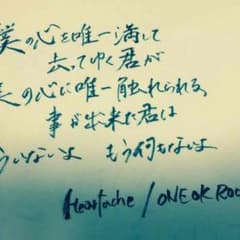 僕の心を唯一満たして
去ってゆく君が
の心に唯一触れられる
事が出来た君は
いないよ もう何もないよ
Heartache / ONE OK ROC